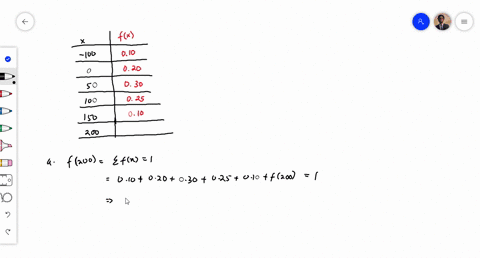 x f(x)
-100 0.10
0 0.20
50 0.30
100 0.25
150 0.10
200
a. f(200) = Σf(x) = 1
= 0.10 + 0.20 + 0.30 + 0.25 + 0.10 + f(200) = 1
⇒